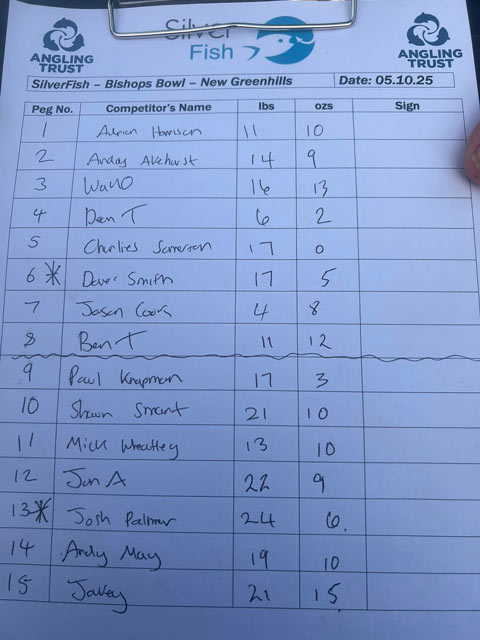 Silver
Fish
ANGLING TRUST
ANGLING TRUST
SilverFish – Bishops Bowl – New Greenhills Date: 05.10.25
Peg No. Competitor's Name lbs ozs Sign
1 Adrian Harrison 11 10
2 Anday Akehurst 14 9
3 Wano 16 13
4 Dan T 6 2
5 Charlies Somerton 17 0
6* Dave Smith 17 5
7 Jason Cook 4 8
8 Ben T 11 12
9 Paul Knapman 17 3
10 Shaun Smart 21 10
11 Mick Wheatley 13 10
12 Jon A 22 9
13* Josh Palmer 24 6.
14 Andy May 19 10
15 Jakey 21 15